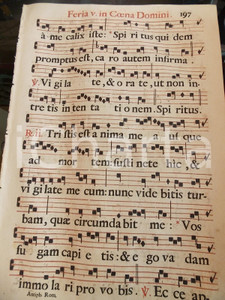 Feria v. in Cœna Domini. 197
à me calix iste: Spi ri tus qui dem
promptus est, ca ro autem infirma.
℣. Vi gi la te, & o ra te, ut non in-
tre tis in ten ta ti o nem. Spi ritus.
Tri stis est a nima me a us que
ad mor tem: susti nete hîc, &
vi gi late me cum: nunc vide bitis tur-
bam, quæ circumda bit me: Vos
fu gam capi e tis: & e go va dam
immo la ri pro vo bis. ℣. Ec ce ap-
Antiph. Rom.